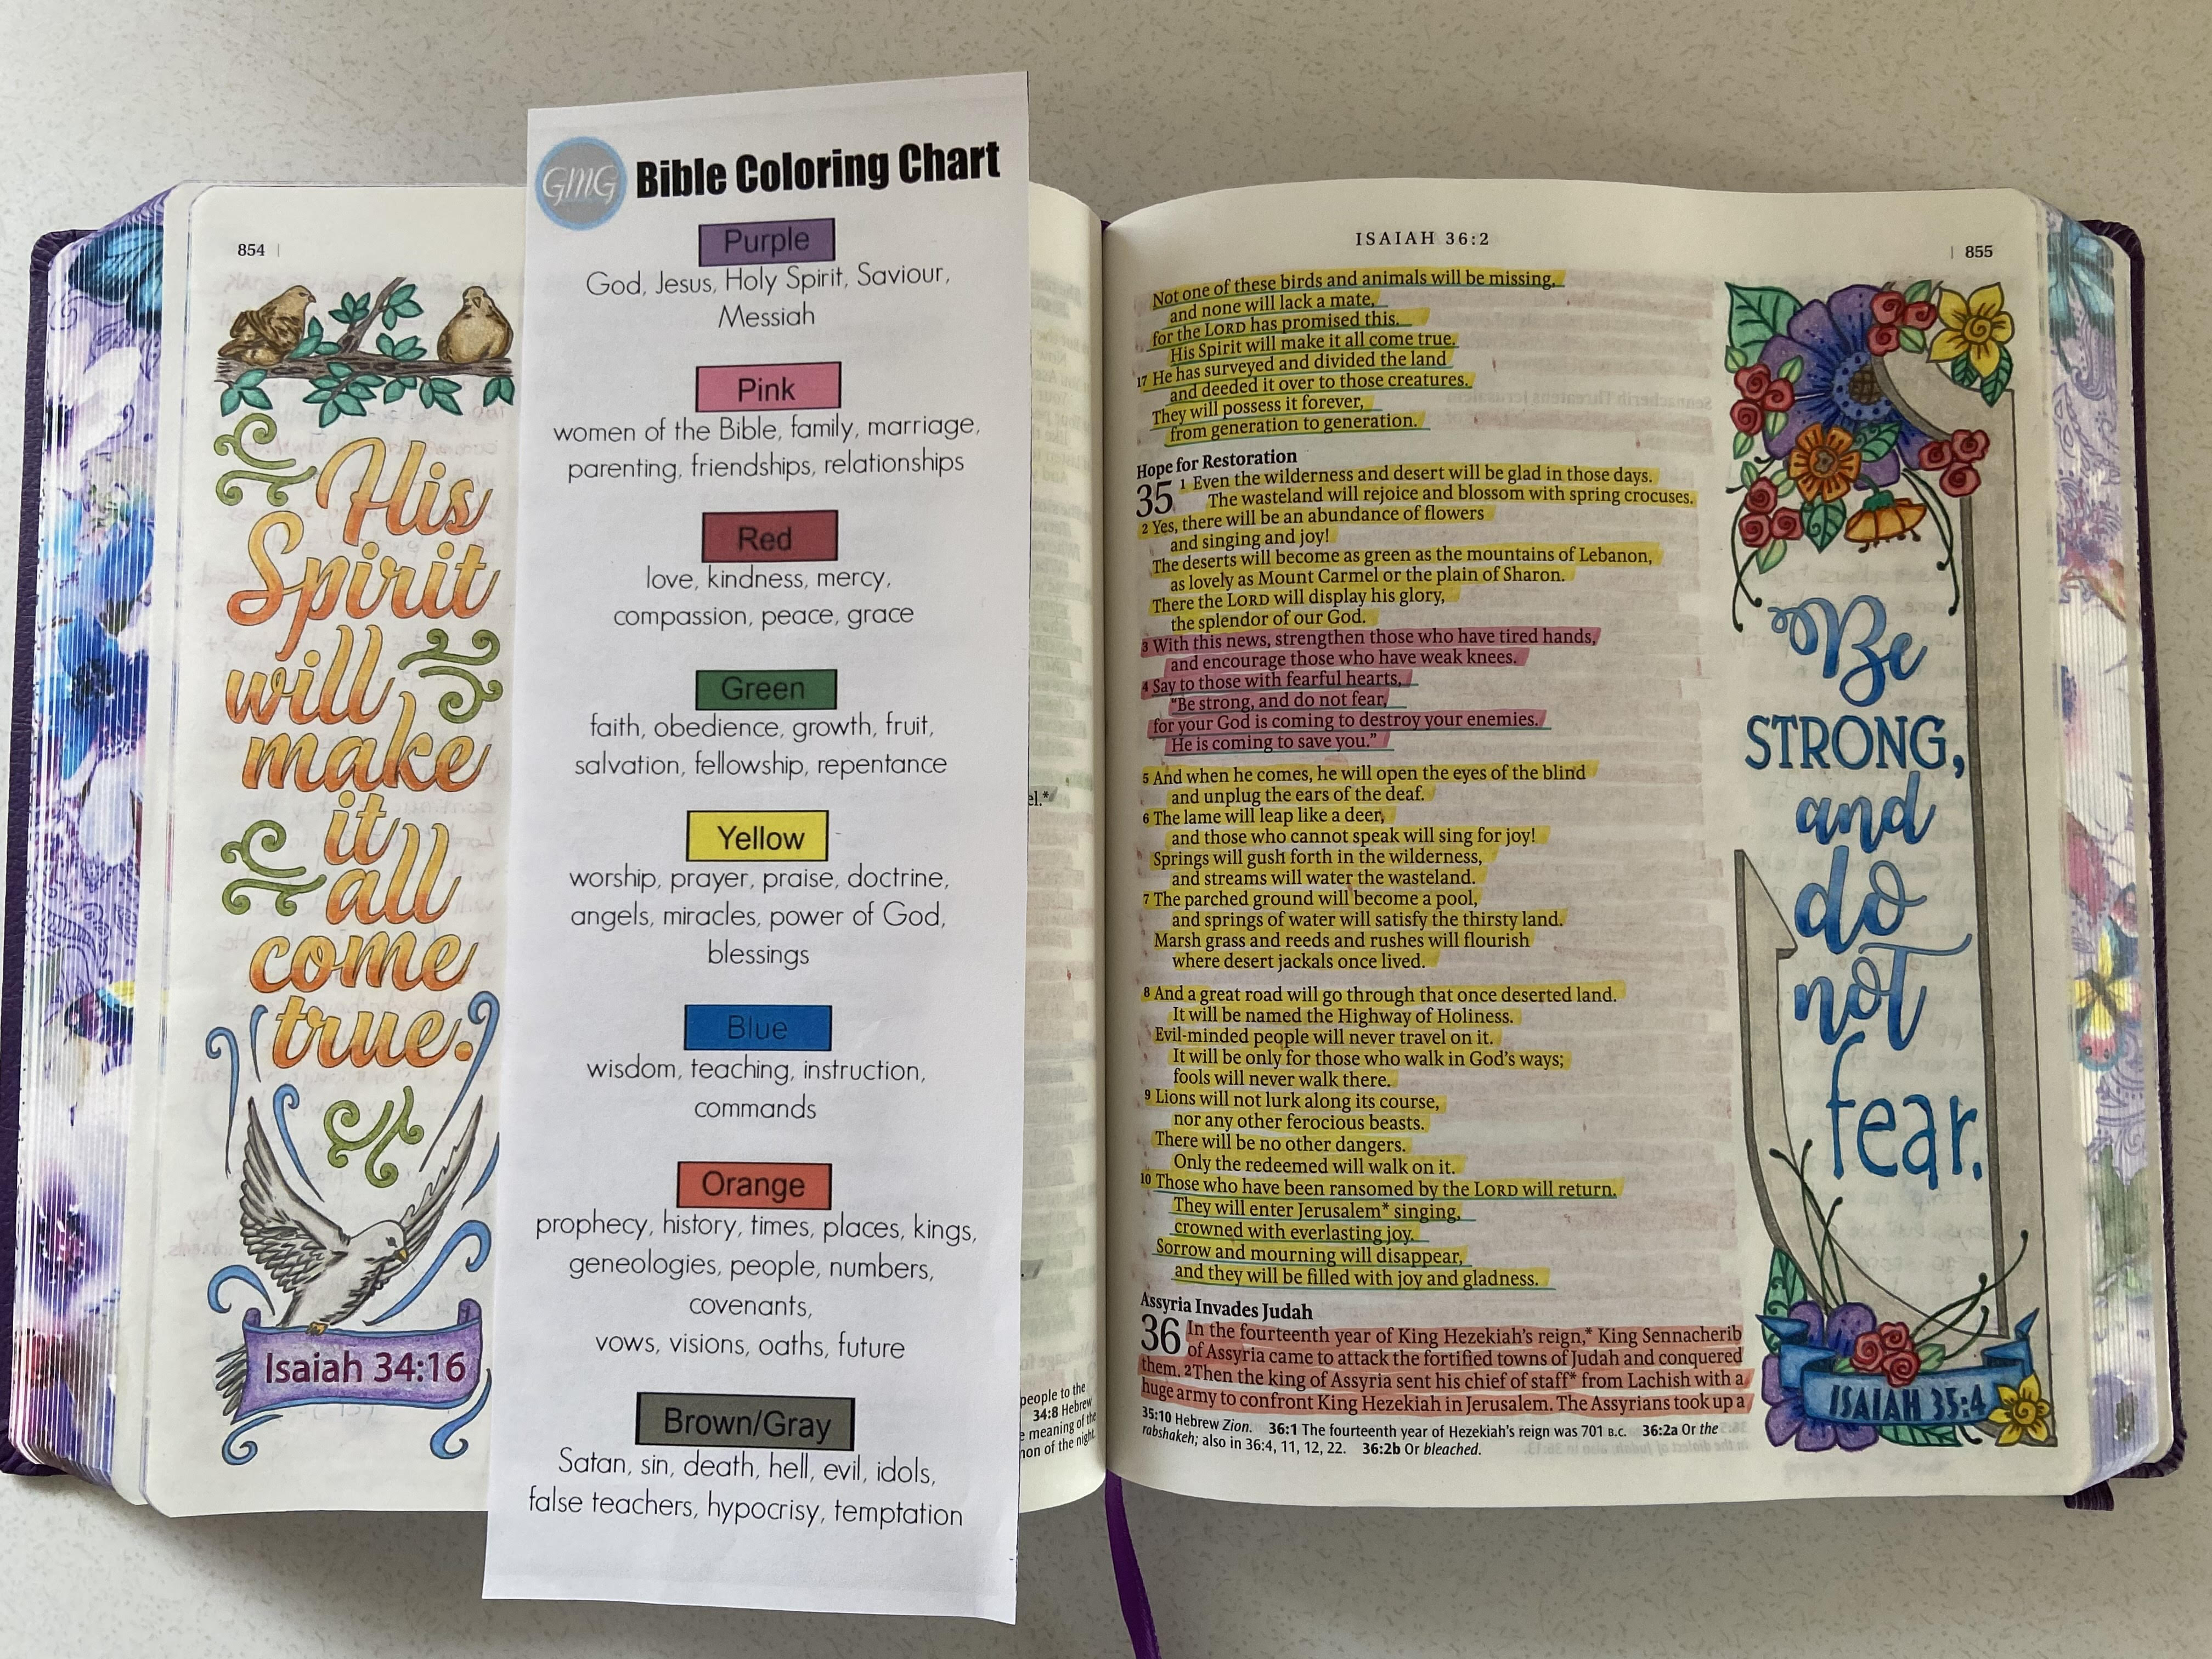 854
His
Spirit
will
make
it
all
come
true.
Isaiah 34:16
GMG
Bible Coloring Chart
Purple
God, Jesus, Holy Spirit, Saviour,
Messiah
Pink
women of the Bible, family, marriage,
parenting, friendships, relationships
Red
love, kindness, mercy,
compassion, peace, grace
Green
faith, obedience, growth, fruit,
salvation, fellowship, repentance
Yellow
worship, prayer, praise, doctrine,
angels, miracles, power of God,
blessings
Blue
wisdom, teaching, instruction,
commands
Orange
prophecy, history, times, places, kings,
geneologies, people, numbers,
covenants,
vows, visions, oaths, future
Brown/Gray
Satan, sin, death, hell, evil, idols,
false teachers, hypocrisy, temptation
people to the
34:8 Hebrew
meaning of the
of the night.
ISAIAH 36:2
855
Not one of these birds and animals will be missing,
and none will lack a mate,
for the LORD has promised this.
His Spirit will make it all come true.
17 He has surveyed and divided the land
and deeded it over to those creatures.
They will possess it forever,
from generation to generation.
Hope for Restoration
35 1 Even the wilderness and desert will be glad in those days.
The wasteland will rejoice and blossom with spring crocuses.
2 Yes, there will be an abundance of flowers
and singing and joy!
The deserts will become as green as the mountains of Lebanon,
as lovely as Mount Carmel or the plain of Sharon.
There the LORD will display his glory,
the splendor of our God.
3 With this news, strengthen those who have tired hands,
and encourage those who have weak knees.
4 Say to those with fearful hearts,
"Be strong, and do not fear,
for your God is coming to destroy your enemies.
He is coming to save you."
5 And when he comes, he will open the eyes of the blind
and unplug the ears of the deaf.
6 The lame will leap like a deer,
and those who cannot speak will sing for joy!
Springs will gush forth in the wilderness,
and streams will water the wasteland.
7 The parched ground will become a pool,
and springs of water will satisfy the thirsty land.
Marsh grass and reeds and rushes will flourish
where desert jackals once lived.
8 And a great road will go through that once deserted land.
It will be named the Highway of Holiness.
Evil-minded people will never travel on it.
It will be only for those who walk in God's ways;
fools will never walk there.
9 Lions will not lurk along its course,
nor any other ferocious beasts.
There will be no other dangers.
Only the redeemed will walk on it.
10 Those who have been ransomed by the LORD will return.
They will enter Jerusalem* singing,
crowned with everlasting joy.
Sorrow and mourning will disappear,
and they will be filled with joy and gladness.
Assyria Invades Judah
36 In the fourteenth year of King Hezekiah's reign,* King Sennacherib
of Assyria came to attack the fortified towns of Judah and conquered
them. 2 Then the king of Assyria sent his chief of staff* from Lachish with a
huge army to confront King Hezekiah in Jerusalem. The Assyrians took up a
35:10 Hebrew Zion. 36:1 The fourteenth year of Hezekiah's reign was 701 B.C. 36:2a Or the
rabshakeh; also in 36:4, 11, 12, 22. 36:2b Or bleached.
Be
STRONG,
and
do
not
fear.
ISAIAH 35:4